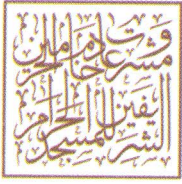 مشروعات خادم الحرمين
الشريفين للمسجد الحرام